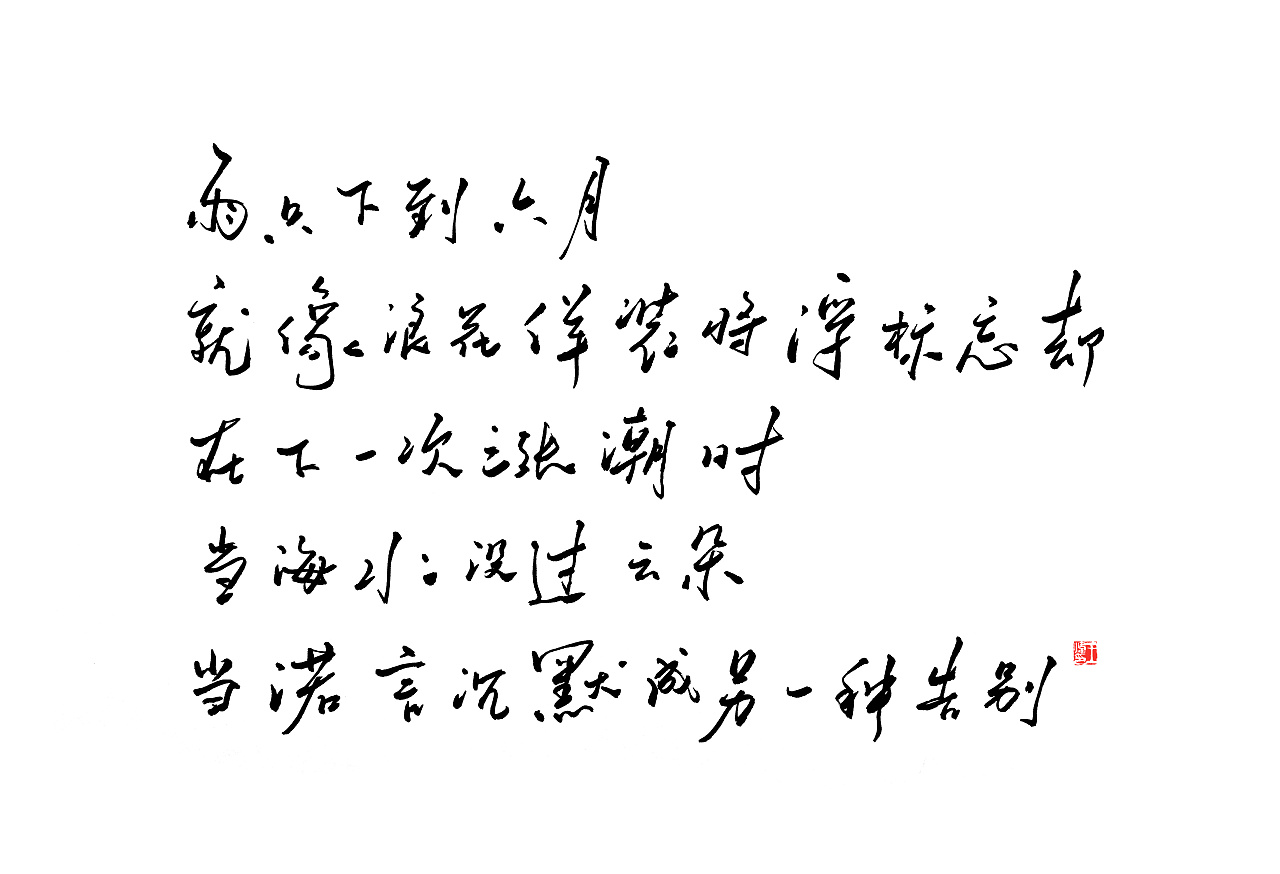 雨只下到六月
就像浪花佯装将浮标忘却
在下一次涨潮时
当海水没过云朵
当诺言沉默成另一种告别